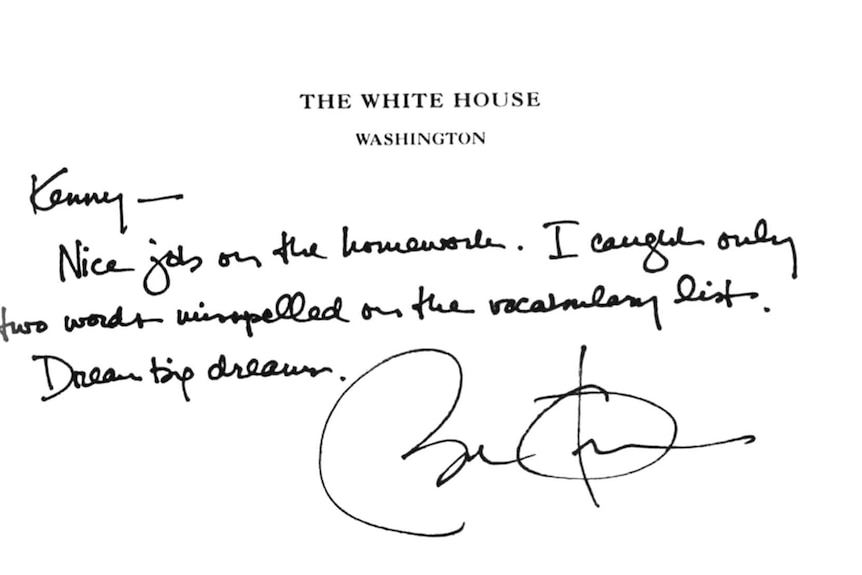 THE WHITE HOUSE
WASHINGTON
Kenny —
Nice job on the homework. I caught only
two words misspelled on the vocabulary list.
Dream big dreams.